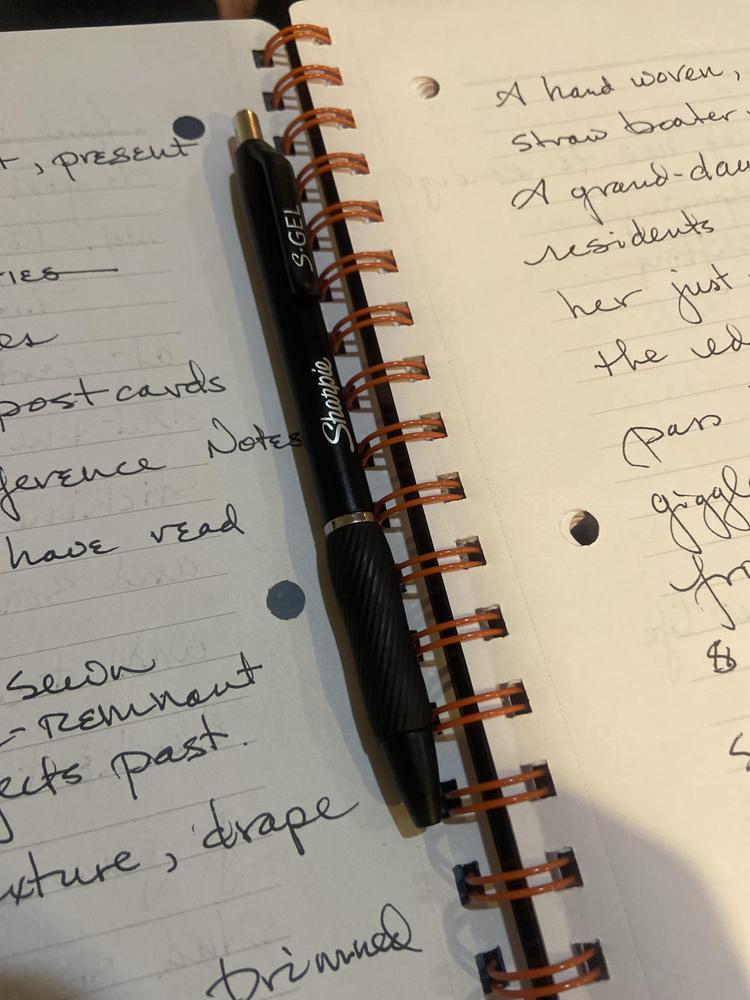 , present
post cards
ference Notes
have read
sewn
- Remnant
ects past.
xture, drape
S·GEL
Sharpie
A hand woven,
straw boater
A grand-dau
residents
her just
the ed
pass
giggle